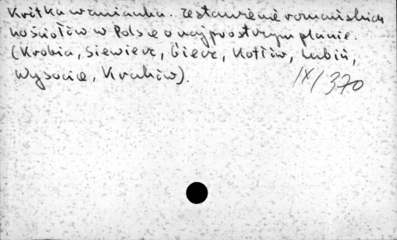 Krótka wzmianka. zestawienie romańskich
kościołów w Polsce o najprostszym planie.
(Krobia, Siewierz, Giecz, Kotłów, Lubiń,
Wysocice, Kraków).
IX/370